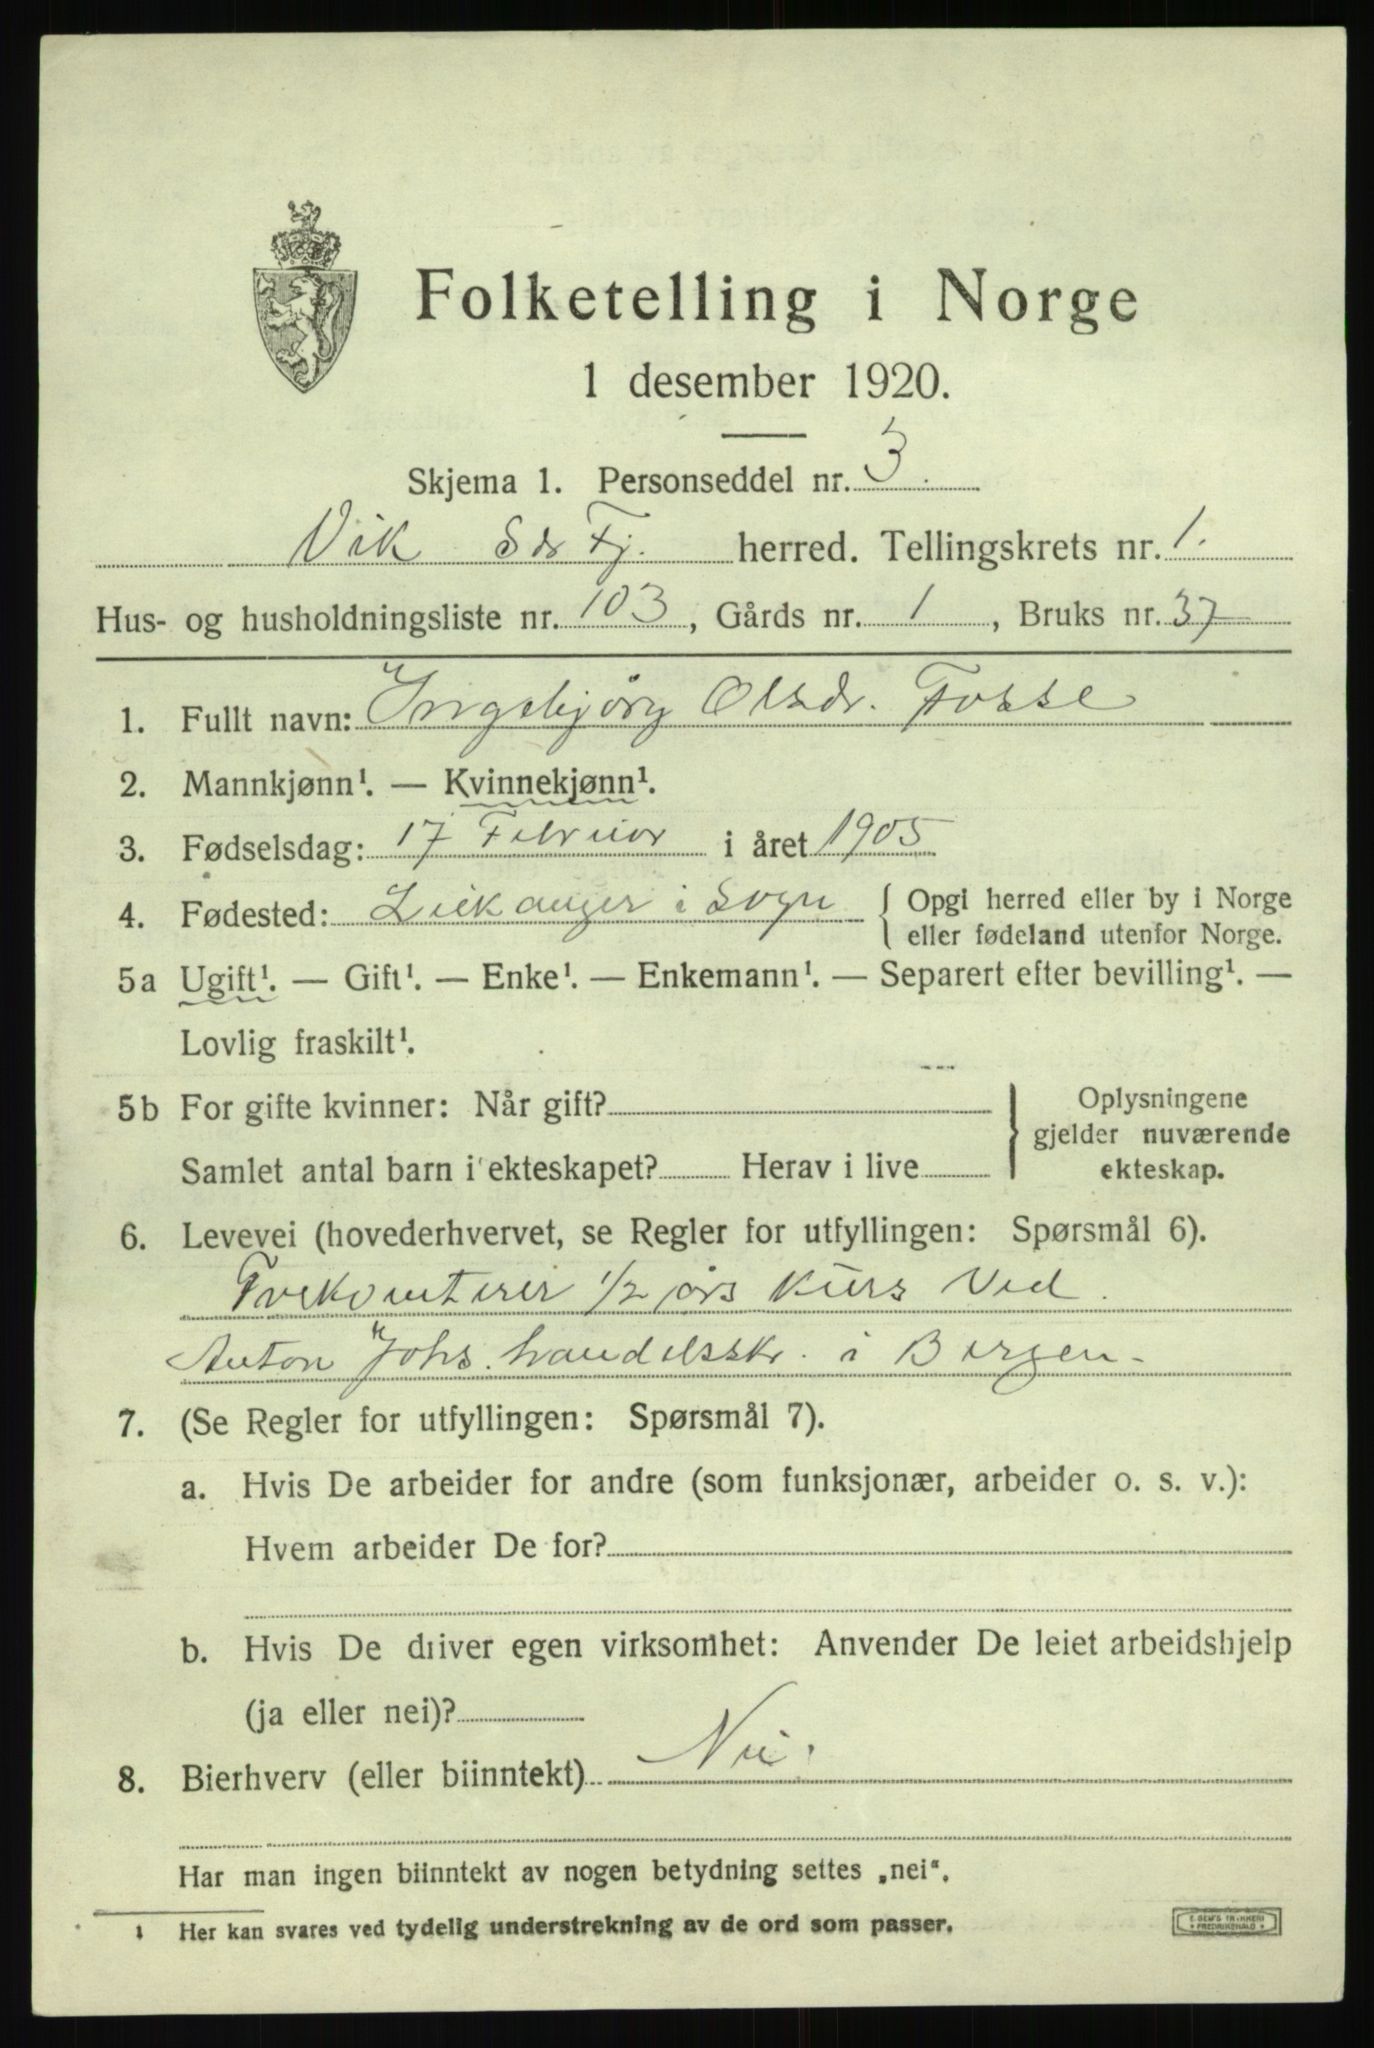 Folketelling i Norge
1 desember 1920.
Skjema 1. Personseddel nr. 3.
Vik Sdr Fj. herred. Tellingskrets nr. 1.
Hus- og husholdningsliste nr. 103, Gårds nr. 1, Bruks nr. 37
1. Fullt navn: Ingebjörg Olsdr. Fosse
2. Mannkjønn¹. — Kvinnekjønn¹.
3. Fødselsdag: 17 Februar i året 1905
4. Fødested: Leikanger i Sogn { Opgi herred eller by i Norge
eller fødeland utenfor Norge.
5a Ugift¹. — Gift¹. — Enke¹. — Enkemann¹. — Separert efter bevilling¹. —
Lovlig fraskilt¹.
5b For gifte kvinner: Når gift?
Samlet antal barn i ekteskapet? Herav i live
} Oplysningene
gjelder nuværende
ekteskap.
6. Levevei (hovederhvervet, se Regler for utfyllingen: Spørsmål 6).
Frekventerer 1/2 års Kurs Ved
Anton Johs. handelssk. i Bergen.
7. (Se Regler for utfyllingen: Spørsmål 7).
a. Hvis De arbeider for andre (som funksjonær, arbeider o. s. v.):
Hvem arbeider De for?
b. Hvis De driver egen virksomhet: Anvender De leiet arbeidshjelp
(ja eller nei)?
8. Bierhverv (eller biinntekt) Nei.
Har man ingen biinntekt av nogen betydning settes „nei“.
1 Her kan svares ved tydelig understrekning av de ord som passer.
E. SEM'S TRYKKERI
FREDRIKSHALD